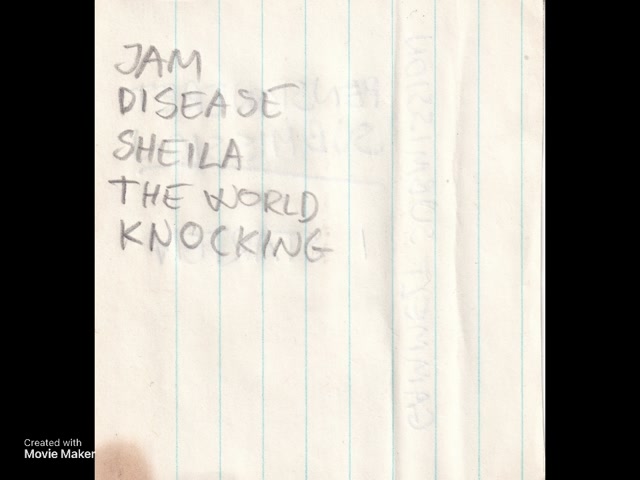 JAM
DISEASE
SHEILA
THE WORLD
KNOCKING
Created with
Movie Maker